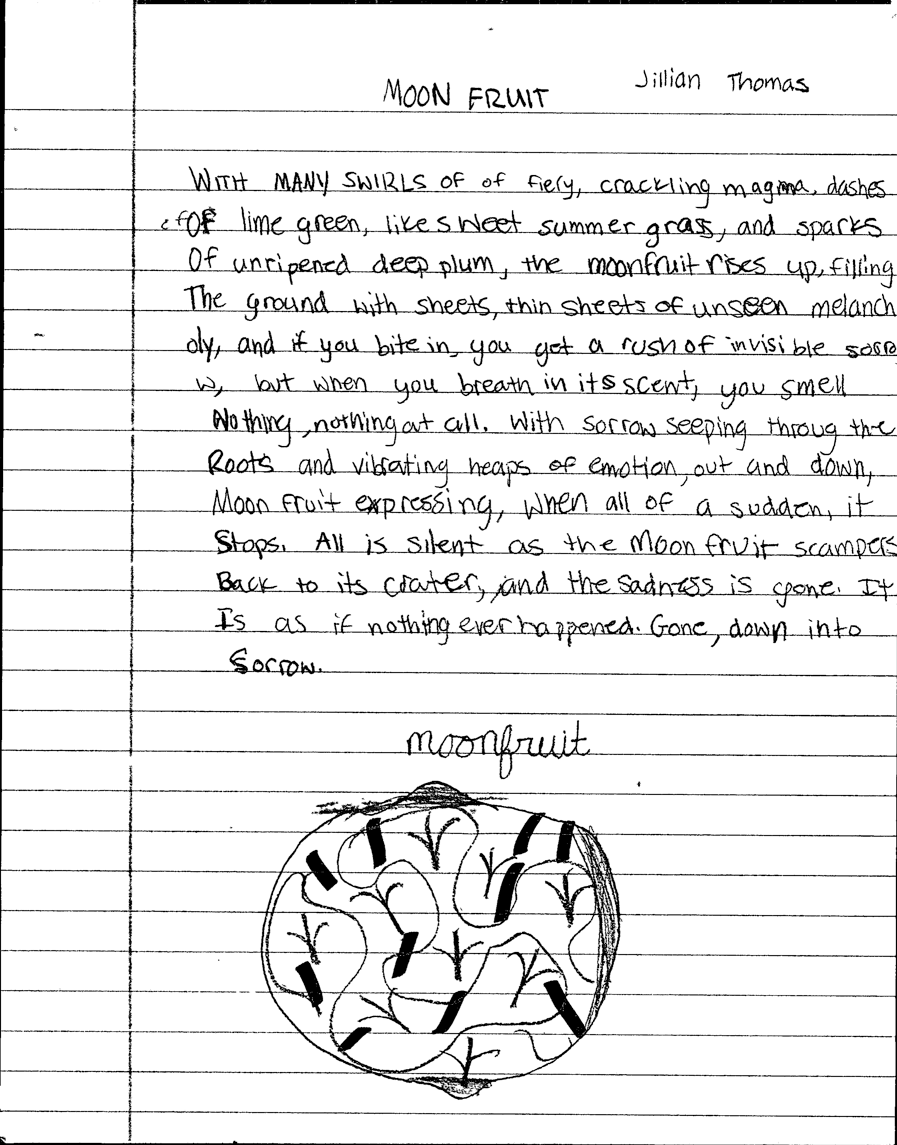 Jillian Thomas
MOON FRUIT
WITH MANY SWIRLS OF of fiery, crackling magma, dashes
of lime green, like sweet summer grass, and sparks
Of unripened deep plum, the moonfruit rises up, filling
The ground with sheets, thin sheets of unseen melanch
oly, and if you bite in, you get a rush of invisible sorro
w, but when you breath in its scent, you smell
Nothing, nothing at all. With sorrow seeping throug the
Roots and vibrating heaps of emotion, out and down,
Moon fruit expressing, when all of a sudden, it
Stops. All is silent as the Moon fruit scampers
Back to its crater, and the sadness is gone. It
Is as if nothing ever happened. Gone, down into
Sorrow.
moonfruit